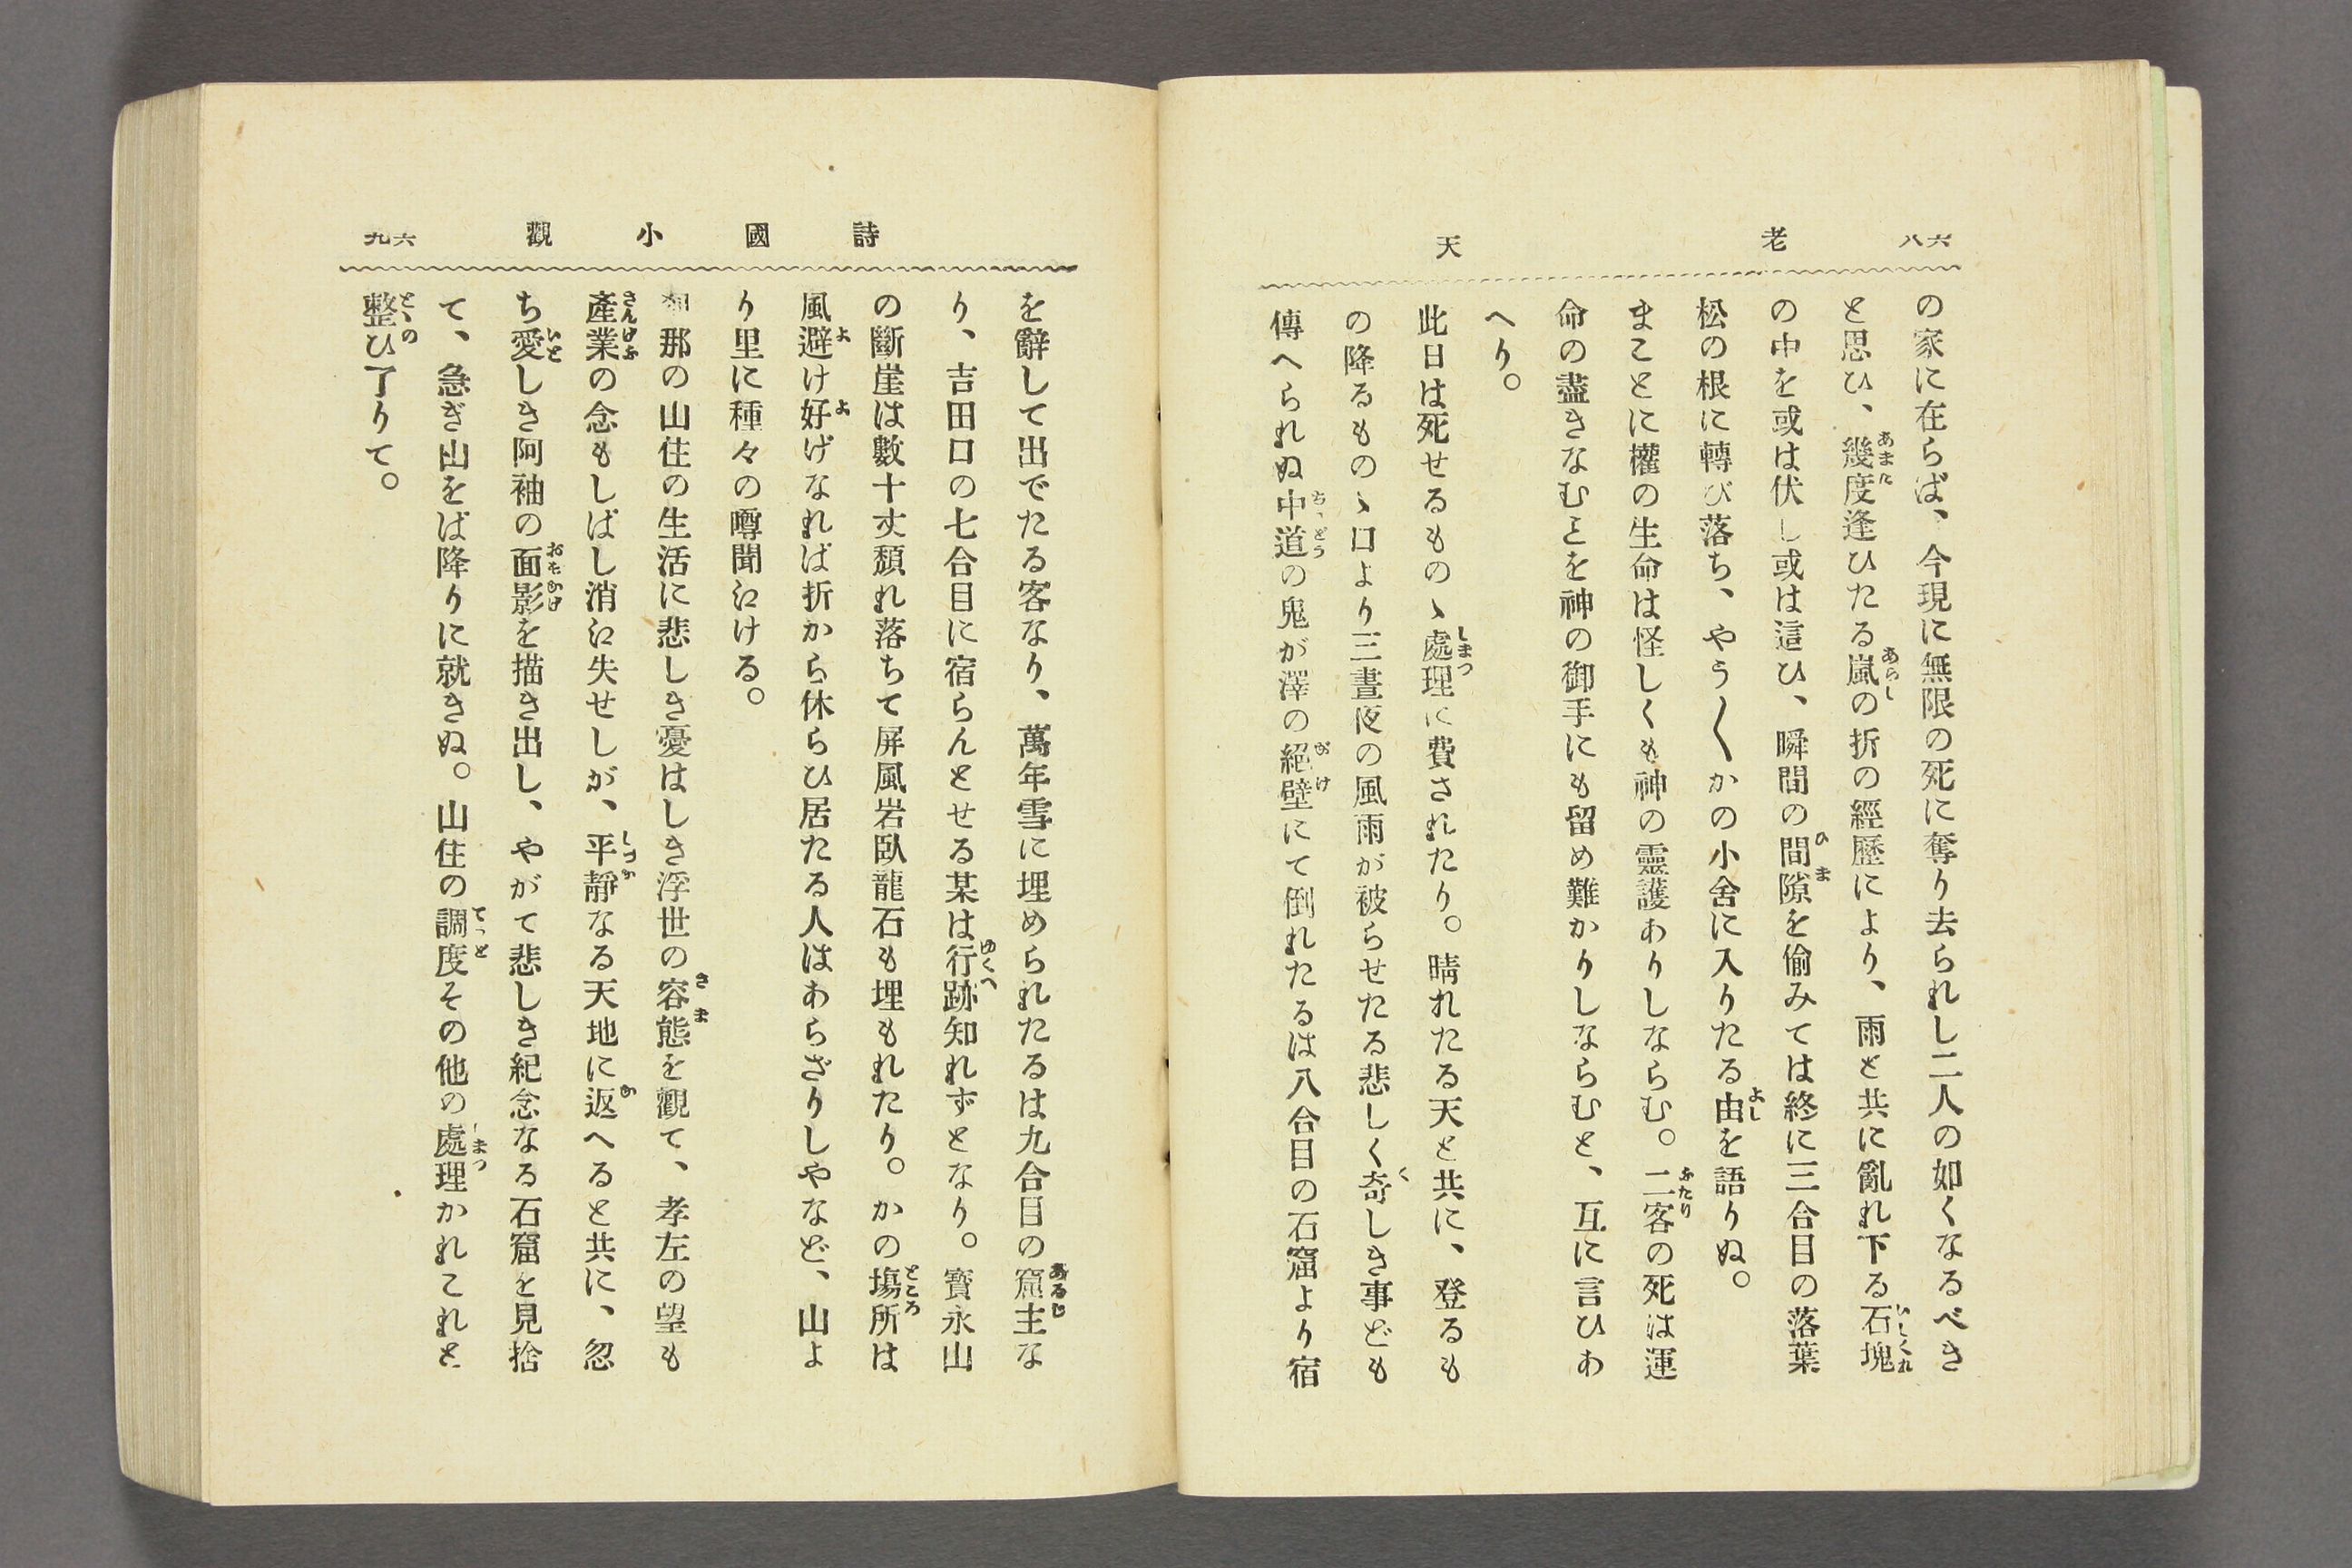 六八
老天
の家に在らば、今現に無限の死に奪り去られし二人の如くなるべき
と思ひ、幾度逢ひたる嵐の折の經歷により、雨と共に亂れ下る石塊
の中を或は伏し或は這ひ、瞬間の間隙を偷みては終に三合目の落葉
松の根に轉び落ち、やう〱かの小舍に入りたる由を語りぬ。
まことに權の生命は怪しくも神の靈護ありしならむ。二客の死は運
命の盡きなむとを神の御手にも留め難かりしならむと、互に言ひあ
へり。
此日は死せるものゝ處理に費されたり。晴れたる天と共に、登るも
の降るものゝ口より三晝夜の風雨が被らせたる悲しく奇しき事ども
傳へられぬ中道の鬼が澤の絕壁にて倒れたるは八合目の石窟より宿
詩國小觀
六九
を辭して出でたる客なり、萬年雪に埋められたるは九合目の窟主な
り、吉田口の七合目に宿らんとせる某は行跡知れずとなり。寳永山
の斷崖は數十丈頽れ落ちて屏風岩臥龍石も埋もれたり。かの塲所は
風避け好げなれば折から休らひ居たる人はあらざりしやなど、山よ
り里に種々の噂聞えける。
刹那の山住の生活に悲しき憂はしき浮世の容態を觀て、孝左の望も
產業の念もしばし消え失せしが、平靜なる天地に返へると共に、忽
ち愛しき阿袖の面影を描き出し、やがて悲しき紀念なる石窟を見捨
て、急ぎ山をば降りに就きぬ。山住の調度その他の處理かれこれと
整ひ了りて。